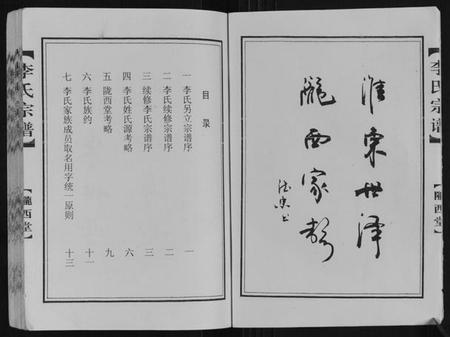 李氏宗谱
隴西堂
淮东世泽
隴西家声
目录
一 李氏另立宗谱序 一
二 李氏续修宗谱序 二
三 续修李氏宗谱序 三
四 李氏姓氏源考略 六
五 陇西堂考略 九
六 李氏族约 十一
七 李氏家族成员取名用字统一原则 十三
【李氏宗谱】
隴西堂